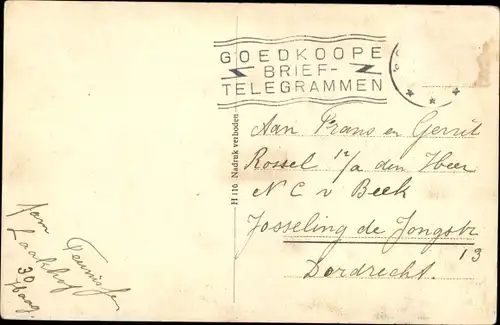 GOEDKOOPE
BRIEF-
TELEGRAMMEN
H 116 Nadruk verboden
Aan Frans en Gerrit
Rossel p/a den Heer
N C v Beek
Josseling de Jongstr
13
Dordrecht.
fam Teunisse
Laakhof
30
Haag.